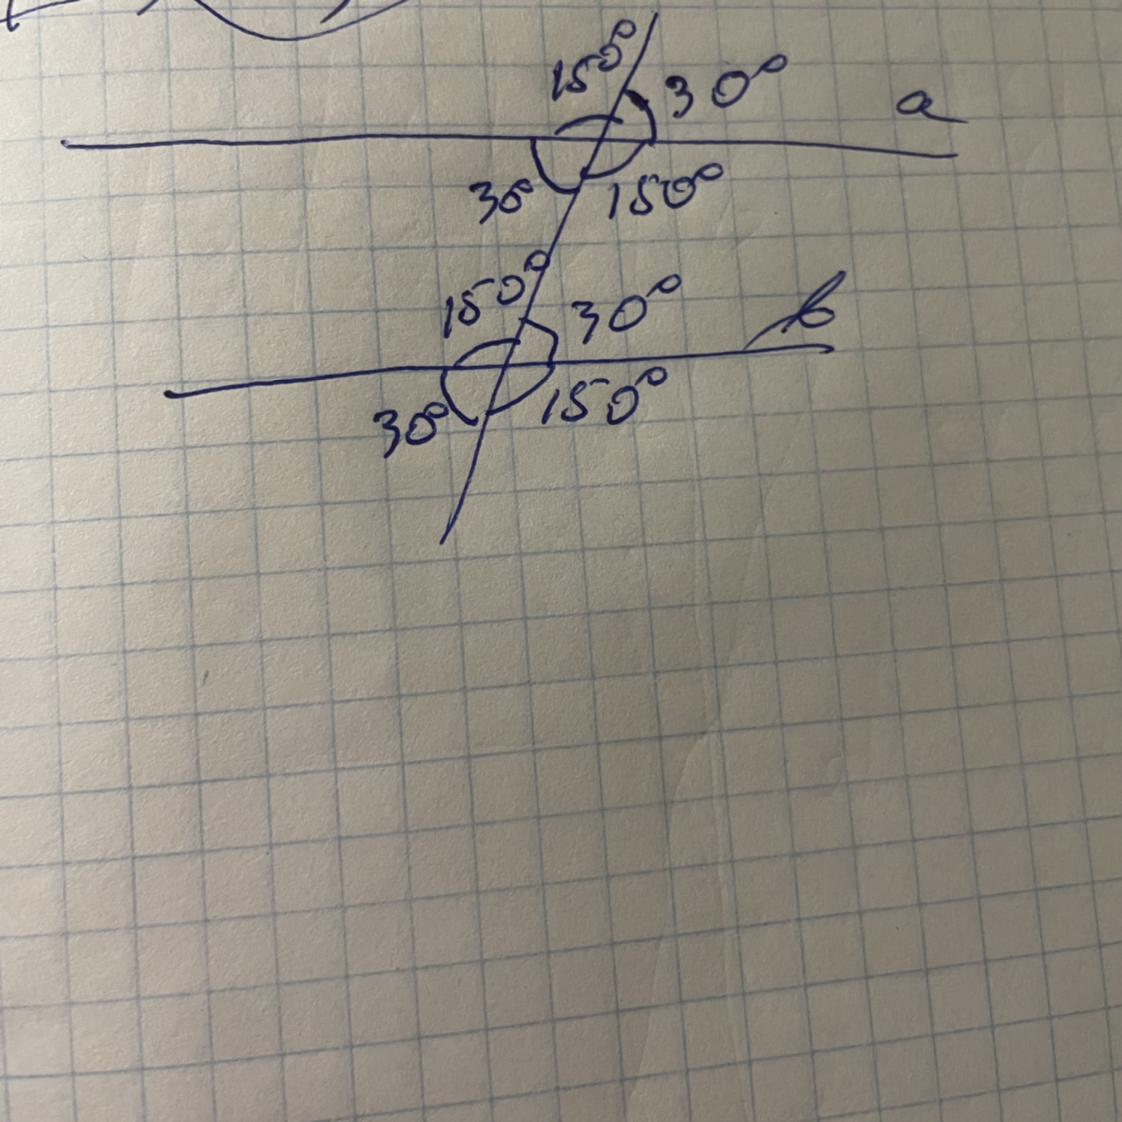 150° 30° a
30° 150°
150° 30° b
30° 150°